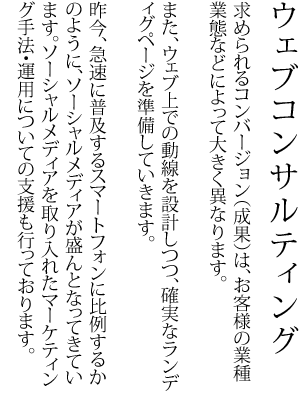 ウェブコンサルティング
求められるコンバージョン（成果）は、お客様の業種
業態などによって大きく異なります。
また、ウェブ上での動線を設計しつつ、確実なランデ
ィグページを準備していきます。
昨今、急速に普及するスマートフォンに比例するか
のように、ソーシャルメディアが盛んとなってきてい
ます。ソーシャルメディアを取り入れたマーケティン
グ手法・運用についての支援も行っております。